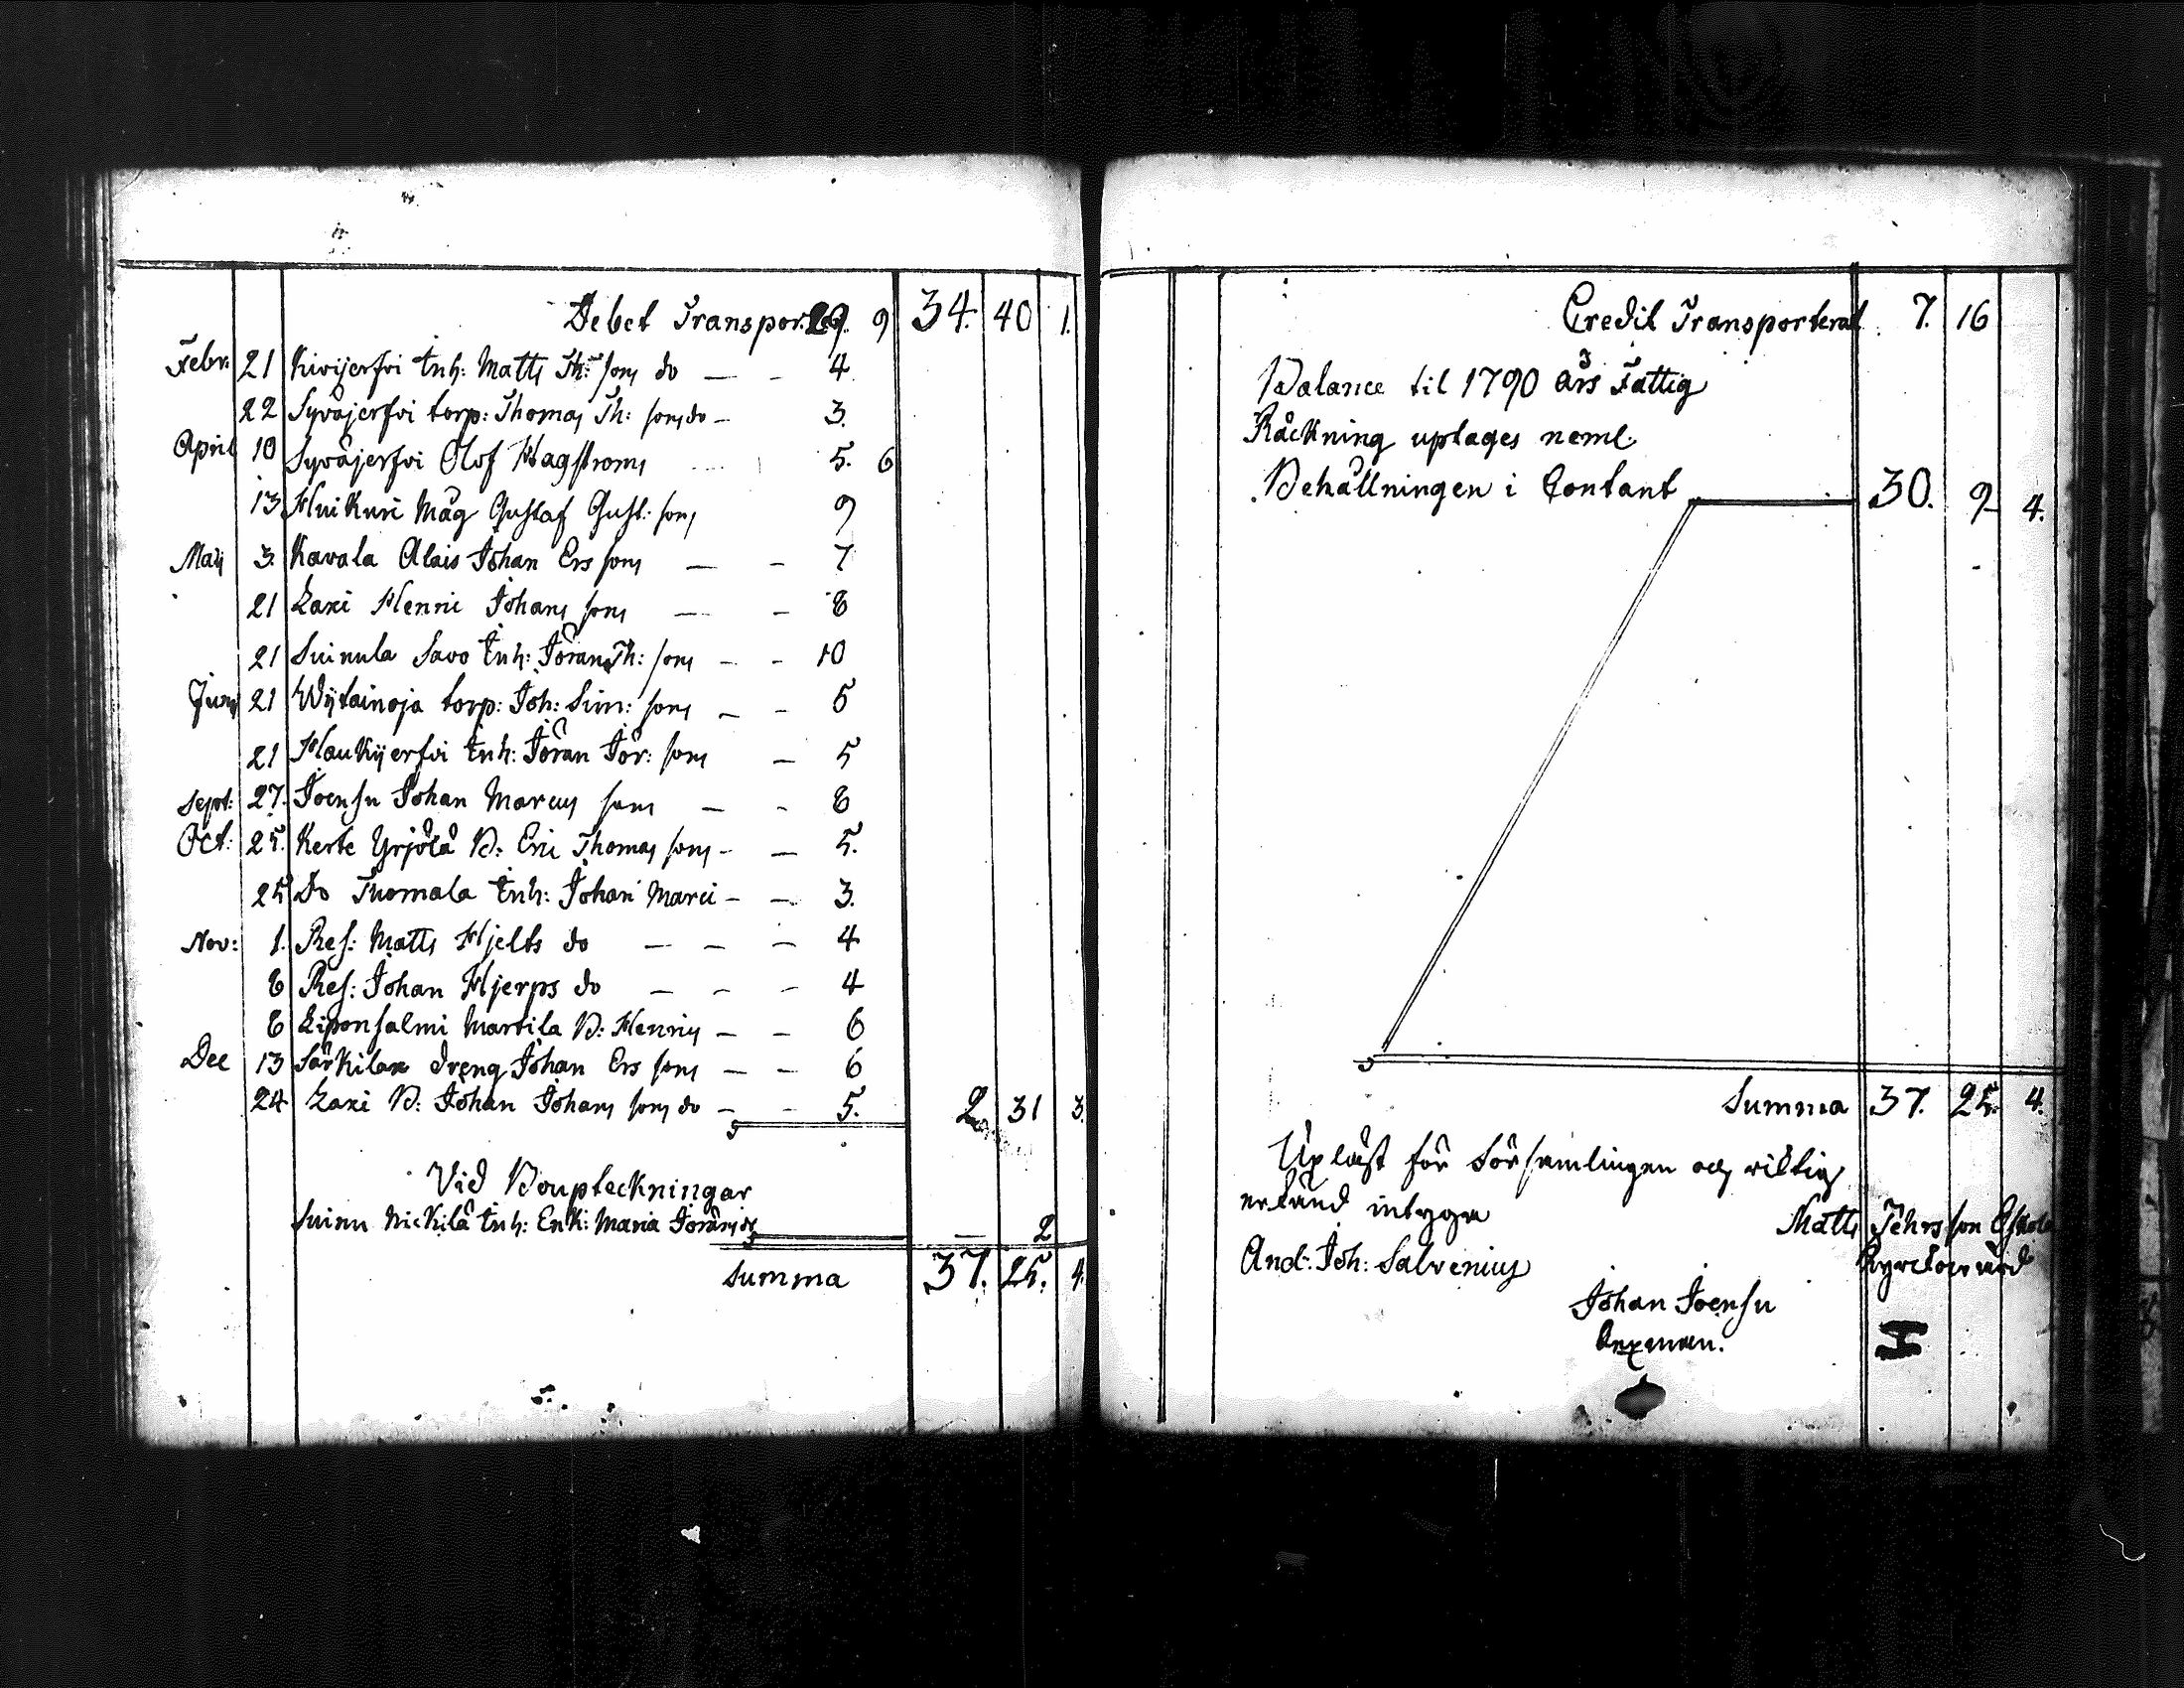 Debet Transpor. 29. 9 34. 40 1.
Febr: 21 Kivijerfvi Inh: Matts Th: sons do — - 4
22 Syväjerfvi torp: Thomas Th: sons do - 3.
April 10 Syväjerfvi Olof Hagströms 5. 6
13 Huikuri Måg Gustaf Gust: sons 9
Maij 3. Kavala Alais Johan Ers sons — - 7
21 Laxi Henric Johans sons — - 8
21 Suinula Savo Inh: Jöran Th: sons - - 10
Junij 21 Wytainoja torp: Joh: Sim: sons - - 5
21 Haukijerfvi Inh: Jöran Jör: sons - 5
Sept: 27. Joensu Johan Marcus sons — - 8
Oct: 25. Kerte Yrjölä B: Eric Thomas sons - — 5.
25 Do Tuomala Inh: Johan Marci - — 3.
Nov: 1. Res: Matts Hjelts do — - — 4
8 Res: Johan Hjerps do — - - 4
8 Liponsalmi Martila B: Henrics — - 6
Dec 13 Särkilax Dreng Johan Ers sons — - 6
24 Laxi B: Johan Johans sons do - - 5. 2. 31 3.
Vid Boupteckningar
Suinu Nickilä Inh: Enk: Maria Jörans dr — 2
Summa 37. 25. 4.
Credit Transporterat 7. 16
Balance til 1790 års Fattig
Räckning uptages neml:
Behållningen i Contant 30. 9 4.
Summa 37. 25. 4.
Upläst för Församlingen och richtig
erkänd intyga
Matts Jöhrs son Eskola
And: Joh: Salvenius Kyrckowärd
Johan Joensu
Sexman.